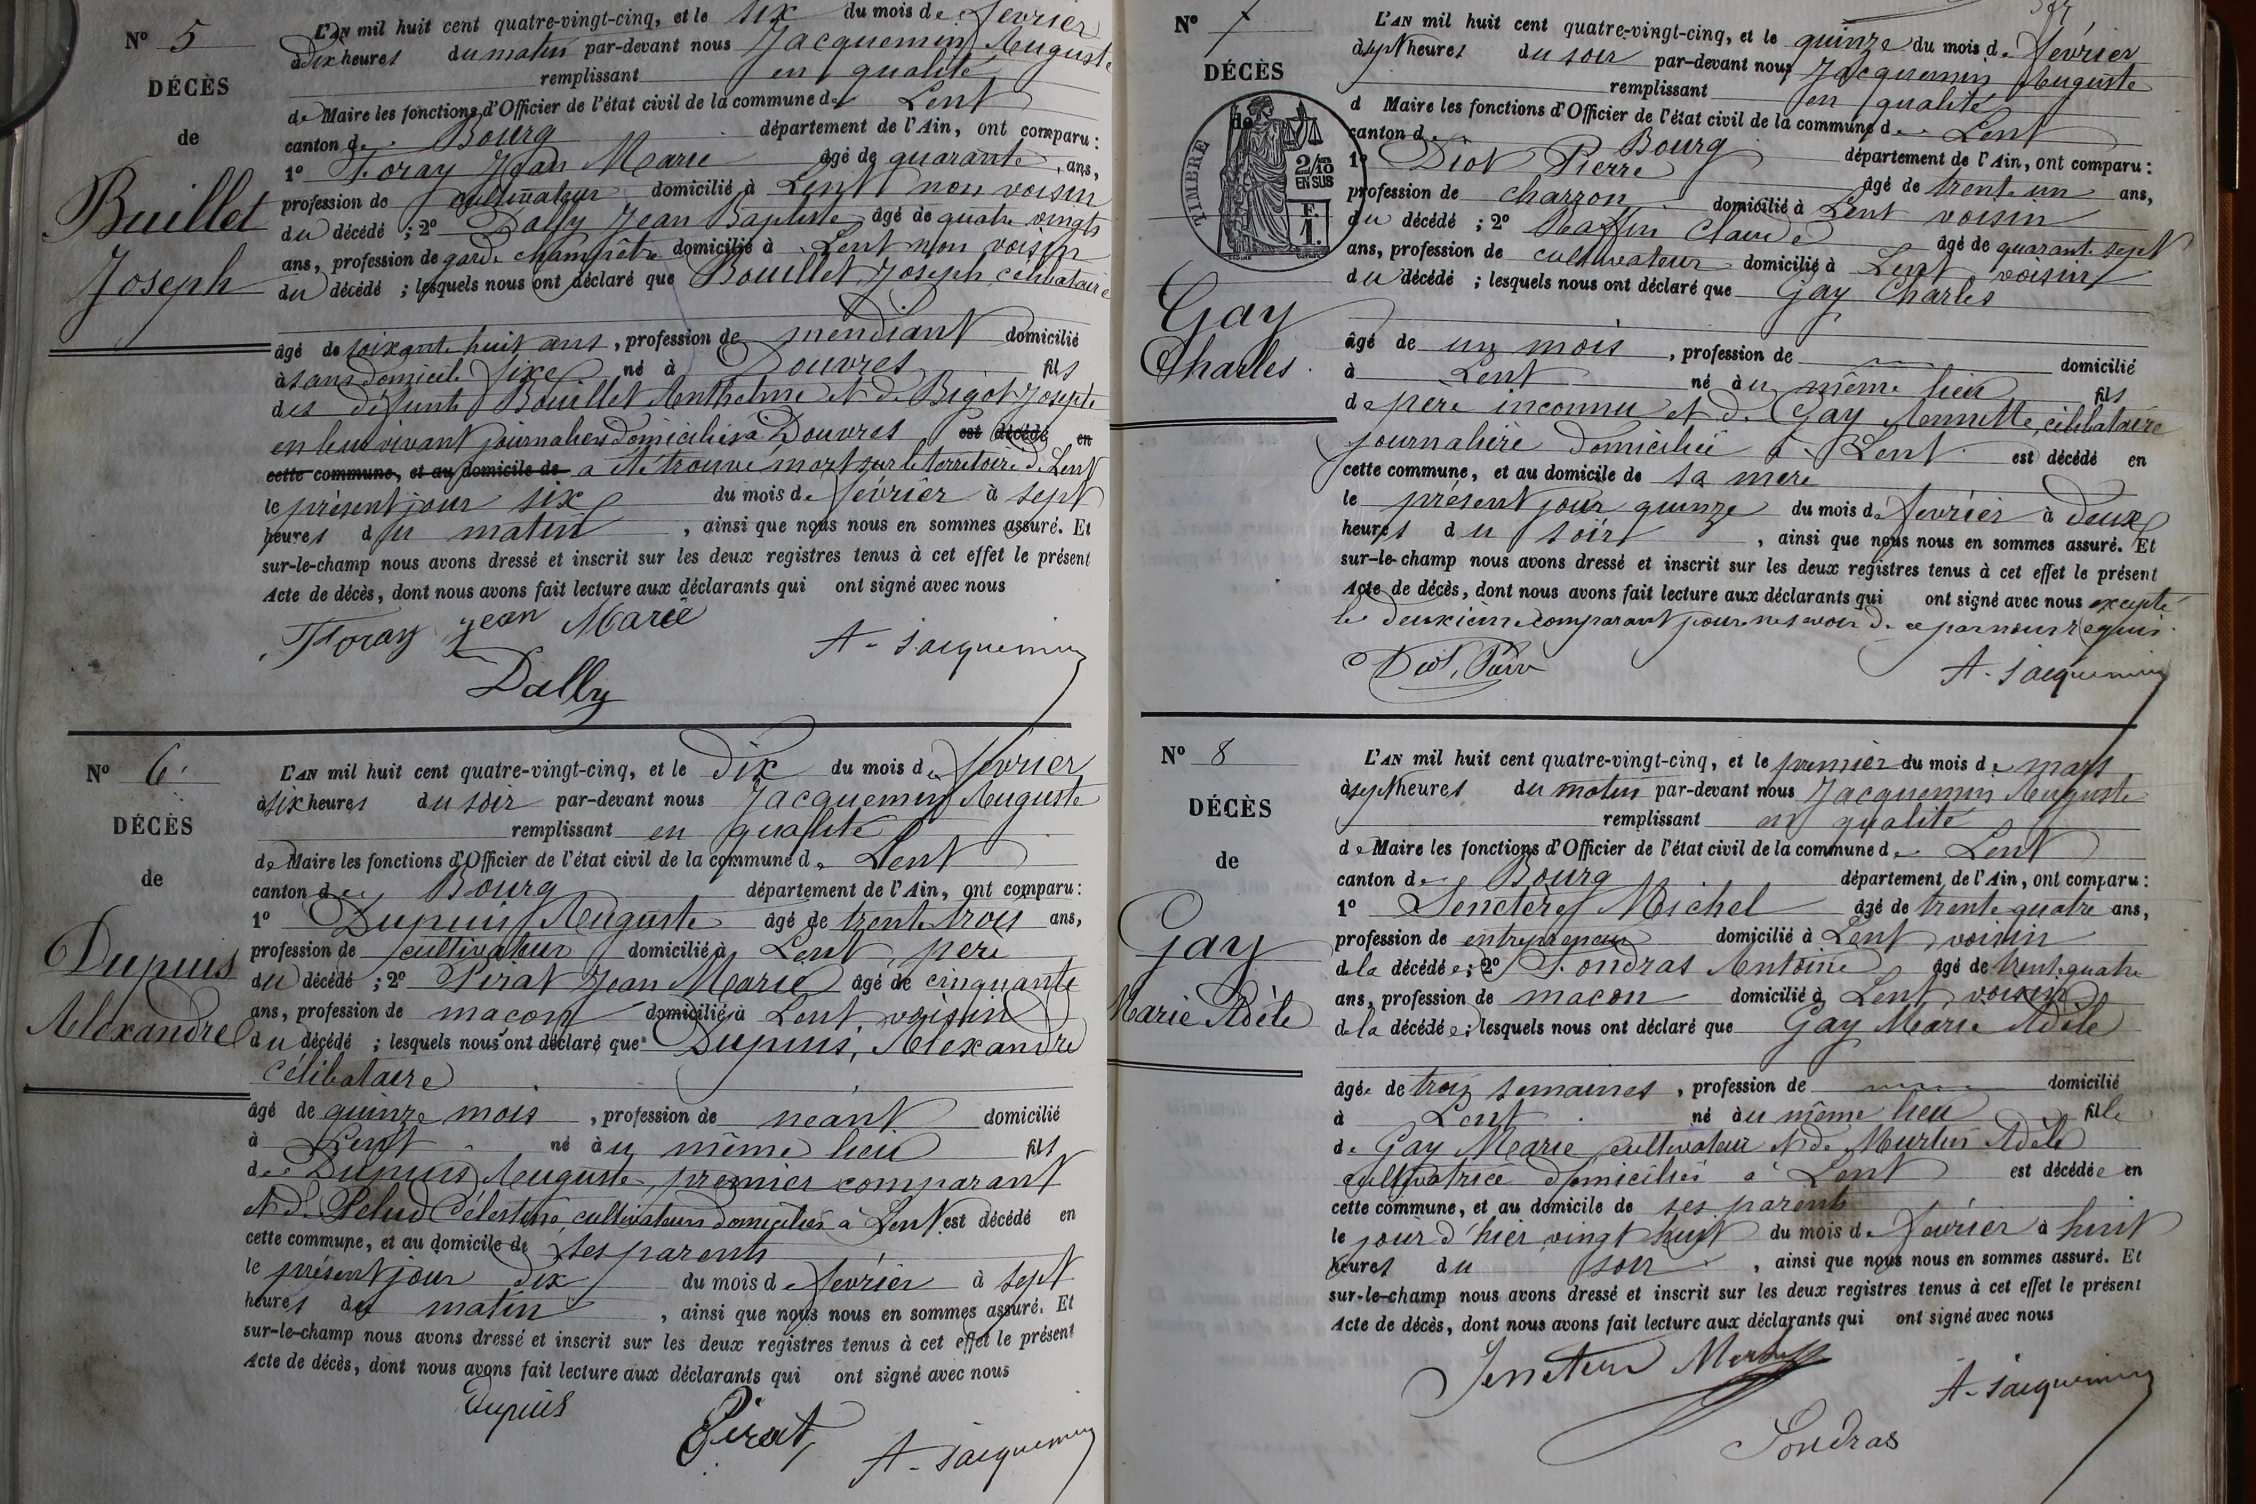 Nº 5
DÉCÈS
de
Buillet
Joseph
L'AN mil huit cent quatre-vingt-cinq, et le six du mois de février
à dix heures du matin par-devant nous Jacquemin Auguste
remplissant en qualité
de Maire les fonctions d'Officier de l'état civil de la commune de Lent
canton de Bourg département de l'Ain, ont comparu :
1º Foray Jean Marie âgé de quarante ans,
profession de cultivateur domicilié à Lent non voisin
du décédé ; 2º Dally Jean Baptiste âgé de quatre vingts
ans, profession de garde champêtre domicilié à Lent non voisin
du décédé ; lesquels nous ont déclaré que Bouillet Joseph, célibataire
âgé de soixante huit ans, profession de mendiant domicilié
à sans domicile fixe né à Douvres fils
des défunts Bouillet Anthelme et de Bigot Josepte
en leur vivant journaliers domiciliés à Douvres est décédé en
cette commune, et au domicile de a été trouvé mort sur le territoire de Lent
le présent jour six du mois de février à sept
heures du matin, ainsi que nous nous en sommes assuré. Et
sur-le-champ nous avons dressé et inscrit sur les deux registres tenus à cet effet le présent
Acte de décès, dont nous avons fait lecture aux déclarants qui ont signé avec nous
Foray Jean Marie
A. Jacquemin
Dally
Nº 6
DÉCÈS
de
Dupuis
Alexandre
L'AN mil huit cent quatre-vingt-cinq, et le dix du mois de février
à six heures du soir par-devant nous Jacquemin Auguste
remplissant en qualité
de Maire les fonctions d'Officier de l'état civil de la commune de Lent
canton de Bourg département de l'Ain, ont comparu :
1º Dupuis Auguste âgé de trente trois ans,
profession de cultivateur domicilié à Lent père
du décédé ; 2º Pirat Jean Marie âgé de cinquante
ans, profession de maçon domicilié à Lent, voisin
du décédé ; lesquels nous ont déclaré que Dupuis, Alexandre
célibataire
âgé de quinze mois, profession de néant domicilié
à Lent né au même lieu fils
de Dupuis Auguste premier comparant
et de Pelud Célestine, cultivateurs domiciliés à Lent est décédé en
cette commune, et au domicile de ses parents
le présent jour dix du mois de février à sept
heures du matin, ainsi que nous nous en sommes assuré. Et
sur-le-champ nous avons dressé et inscrit sur les deux registres tenus à cet effet le présent
Acte de décès, dont nous avons fait lecture aux déclarants qui ont signé avec nous
Dupuis
Pirat
A. Jacquemin
Nº 7
DÉCÈS
de
TIMBRE
2/10 EN SUS
Gay
Charles
L'AN mil huit cent quatre-vingt-cinq, et le quinze du mois de février
à sept heures du soir par-devant nous Jacquemin Auguste
remplissant en qualité
d Maire les fonctions d'Officier de l'état civil de la commune de Lent
canton de Bourg département de l'Ain, ont comparu :
1º Diot Pierre âgé de trente un ans,
profession de charron domicilié à Lent voisin
du décédé ; 2º Raffin Claude âgé de quarante sept
ans, profession de cultivateur domicilié à Lent voisin
du décédé ; lesquels nous ont déclaré que Gay Charles
âgé de un mois, profession de domicilié
à Lent né au même lieu fils
de père inconnu et de Gay Annette, célibataire
journalière domiciliée à Lent est décédé en
cette commune, et au domicile de sa mère
le présent jour quinze du mois de février à deux
heures du soir, ainsi que nous nous en sommes assuré. Et
sur-le-champ nous avons dressé et inscrit sur les deux registres tenus à cet effet le présent
Acte de décès, dont nous avons fait lecture aux déclarants qui ont signé avec nous excepté
le deuxième comparant pour ne savoir de ce par nous requis.
Diot
A. Jacquemin
Nº 8
DÉCÈS
de
Gay
Marie Adèle
L'AN mil huit cent quatre-vingt-cinq, et le premier du mois de mars
à sept heures du matin par-devant nous Jacquemin Auguste
remplissant en qualité
de Maire les fonctions d'Officier de l'état civil de la commune de Lent
canton de Bourg département de l'Ain, ont comparu :
1º Senetère Michel âgé de trente quatre ans,
profession de entrepreneur domicilié à Lent, voisin
de la décédée ; 2º Sondras Antoine âgé de trente quatre
ans, profession de maçon domicilié à Lent, voisin
de la décédée ; lesquels nous ont déclaré que Gay Marie Adèle
âgée de trois semaines, profession de domicilié
à Lent né au même lieu fille
de Gay Marie cultivateur et de Murtin Adèle
cultivatrice domiciliés à Lent est décédée en
cette commune, et au domicile de ses parents
le jour d'hier vingt huit du mois de février à huit
heures du soir, ainsi que nous nous en sommes assuré. Et
sur-le-champ nous avons dressé et inscrit sur les deux registres tenus à cet effet le présent
Acte de décès, dont nous avons fait lecture aux déclarants qui ont signé avec nous
A. Jacquemin
Sondras